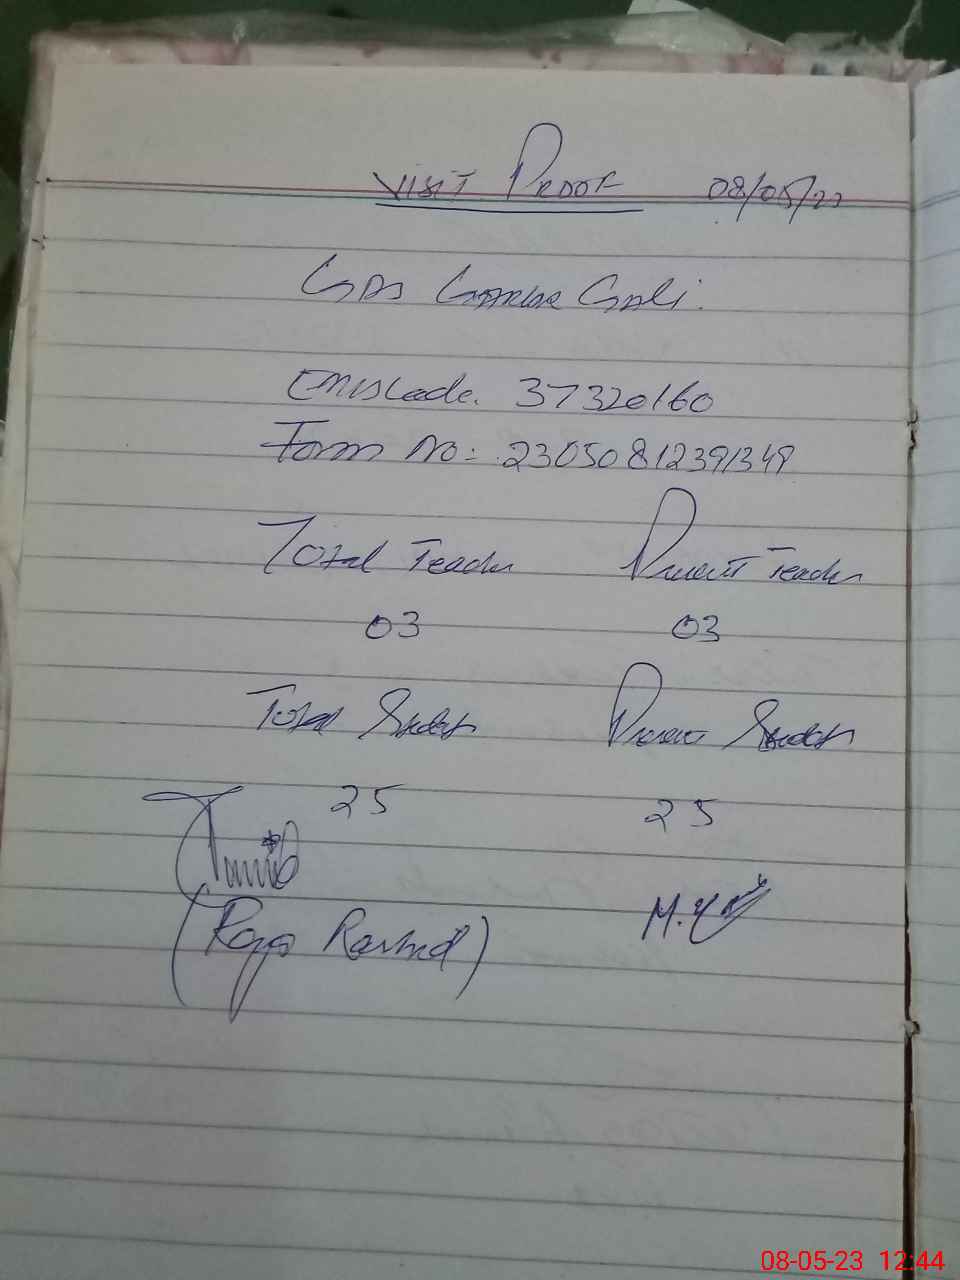 VISIT PROOF 08/05/23
Emiscode. 37320160
Form No: 23050812391349
Total Teacher Present Teacher
03 03
Total Students Present Students
25 25
(Raja Rashid) M.
08-05-23 12:44